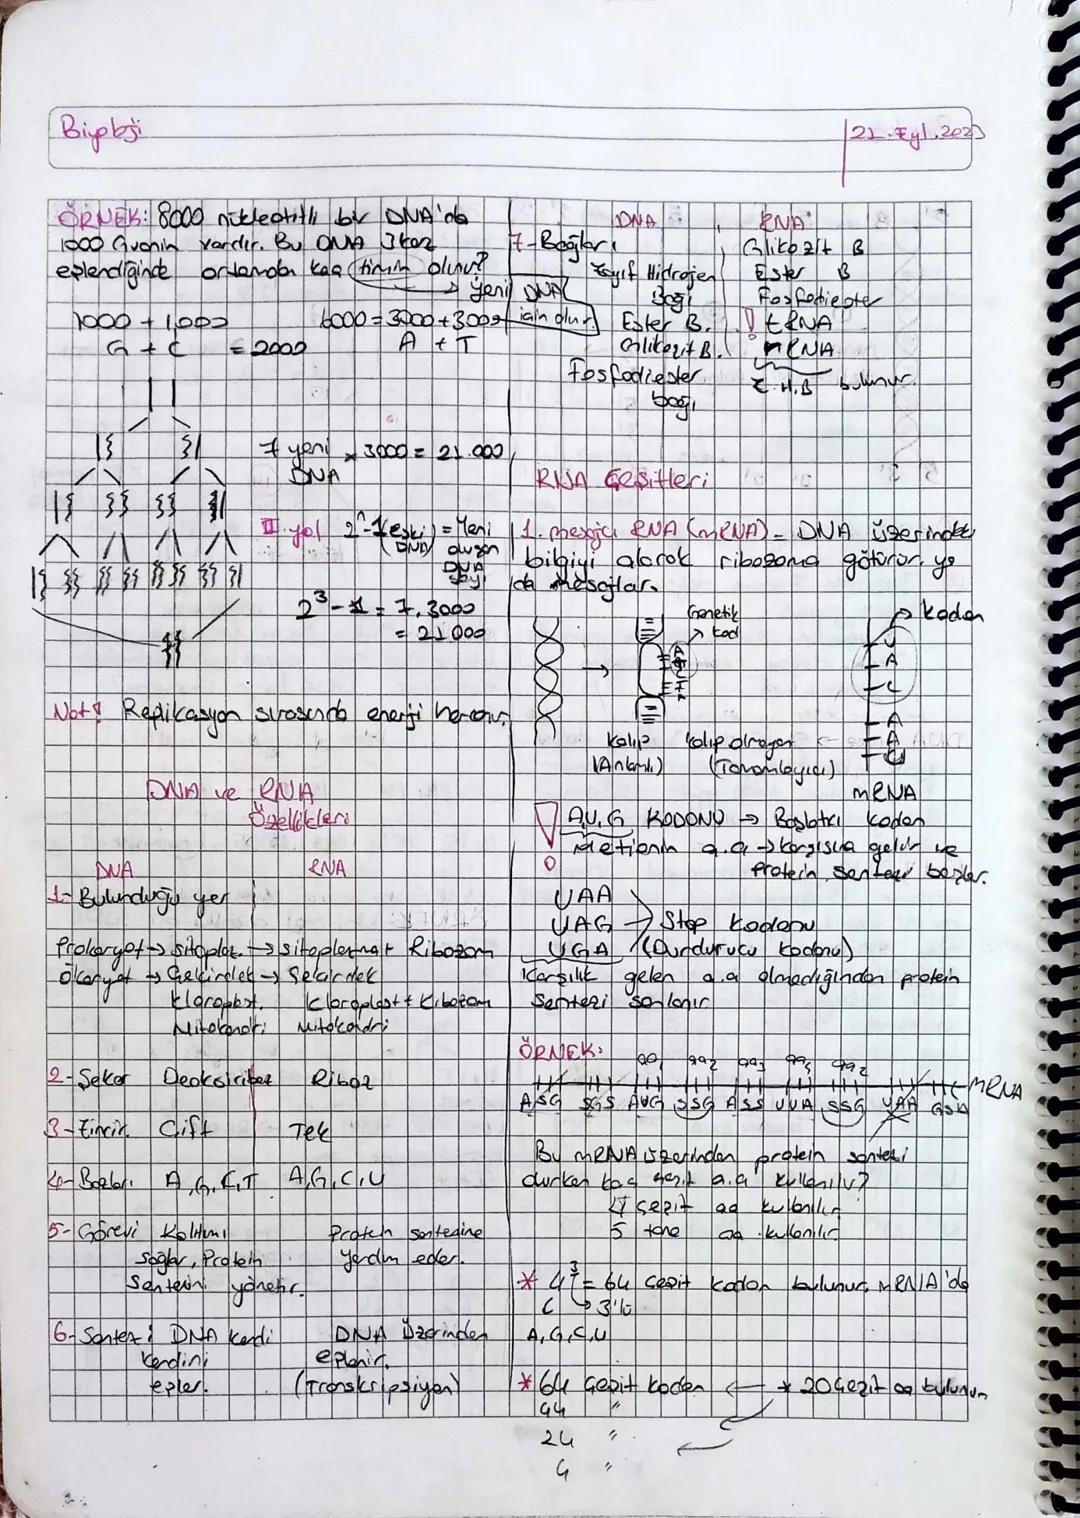 Biyoloji
21.Eyl.2023
ÖRNEK: 8000 nükleotitli bir DNA'da
1000 Guanin vardır. Bu DNA 3 kez
eşlendiğinde ortamdan kaç timin alınır?
→ yeni DNA
için alınır
1000 + 1000
G + C = 2000
6000 = 3000 + 3000
A + T
7 yeni × 3000 = 21.000
DNA
II. yol 2ⁿ-1(eski) = Yeni
(DNA) oluşan
DNA
sayı
2³-1 = 7.3000
= 21000
Not! Replikasyon sırasında enerji harcanır.
DNA ve RNA
Özellikleri
DNA RNA
1- Bulunduğu yer
Prokaryot → sitoplaz. → sitoplazma + Ribozom
Ökaryot → Çekirdek → Çekirdek
Kloroplast. Kloroplast + Ribozom
Mitokondri Mitokondri
2- Şeker Deoksiriboz Riboz
3- Zincir. Çift Tek
4- Bazları. A,G,C,T A,G,C,U
5- Görevi Kalıtımı Protein sentezine
sağlar, Protein yardım eder.
Sentezini yönetir.
6- Sentezi DNA kendi DNA üzerinden
kendini eşlenir.
eşler. (Transkripsiyon)
DNA RNA
7- Bağları Glikozit B
Zayıf Hidrojen Ester B
Bağı Fosfodiester
Ester B. ! tRNA
Glikozit B. RNA
Fosfodiester Z.H.B bulunur.
bağı
RNA Çeşitleri
1. mesajcı RNA (mRNA) - DNA üzerindeki
bilgiyi alarak ribozoma götürür. ya
da mesajlar.
Genetik
kod
kodon
U
A
C
A
A
U
Kalıp Kalıp olmayan
(Anlamlı) (Tamamlayıcı)
mRNA
! A,U,G KODONU → Başlatıcı kodon
Metionin a.a → karşısına gelir ve
Protein sentezi başlar.
UAA
UAG → Stop kodonu
UGA (Durdurucu kodonu)
Karşılık gelen a.a olmadığından protein
Sentezi sonlanır
ÖRNEK:
aa₁ aa₂ aa₃ aa₄ aa₂
mRNA
ASG SGS AUG SSG ASS UUA SSG UAA GSA
Bu mRNA üzerinden protein sentezi
durken kaç çeşit a.a kullanılır?
4 çeşit aa kullanılır
5 tane aa kullanılır
* 4³ = 64 çeşit kodon bulunur, mRNA'da
↳ 3'lü
A,G,C,U
* 64 Çeşit kodon ← * 20 çeşit aa bulunur
44 "
24 "
4 "